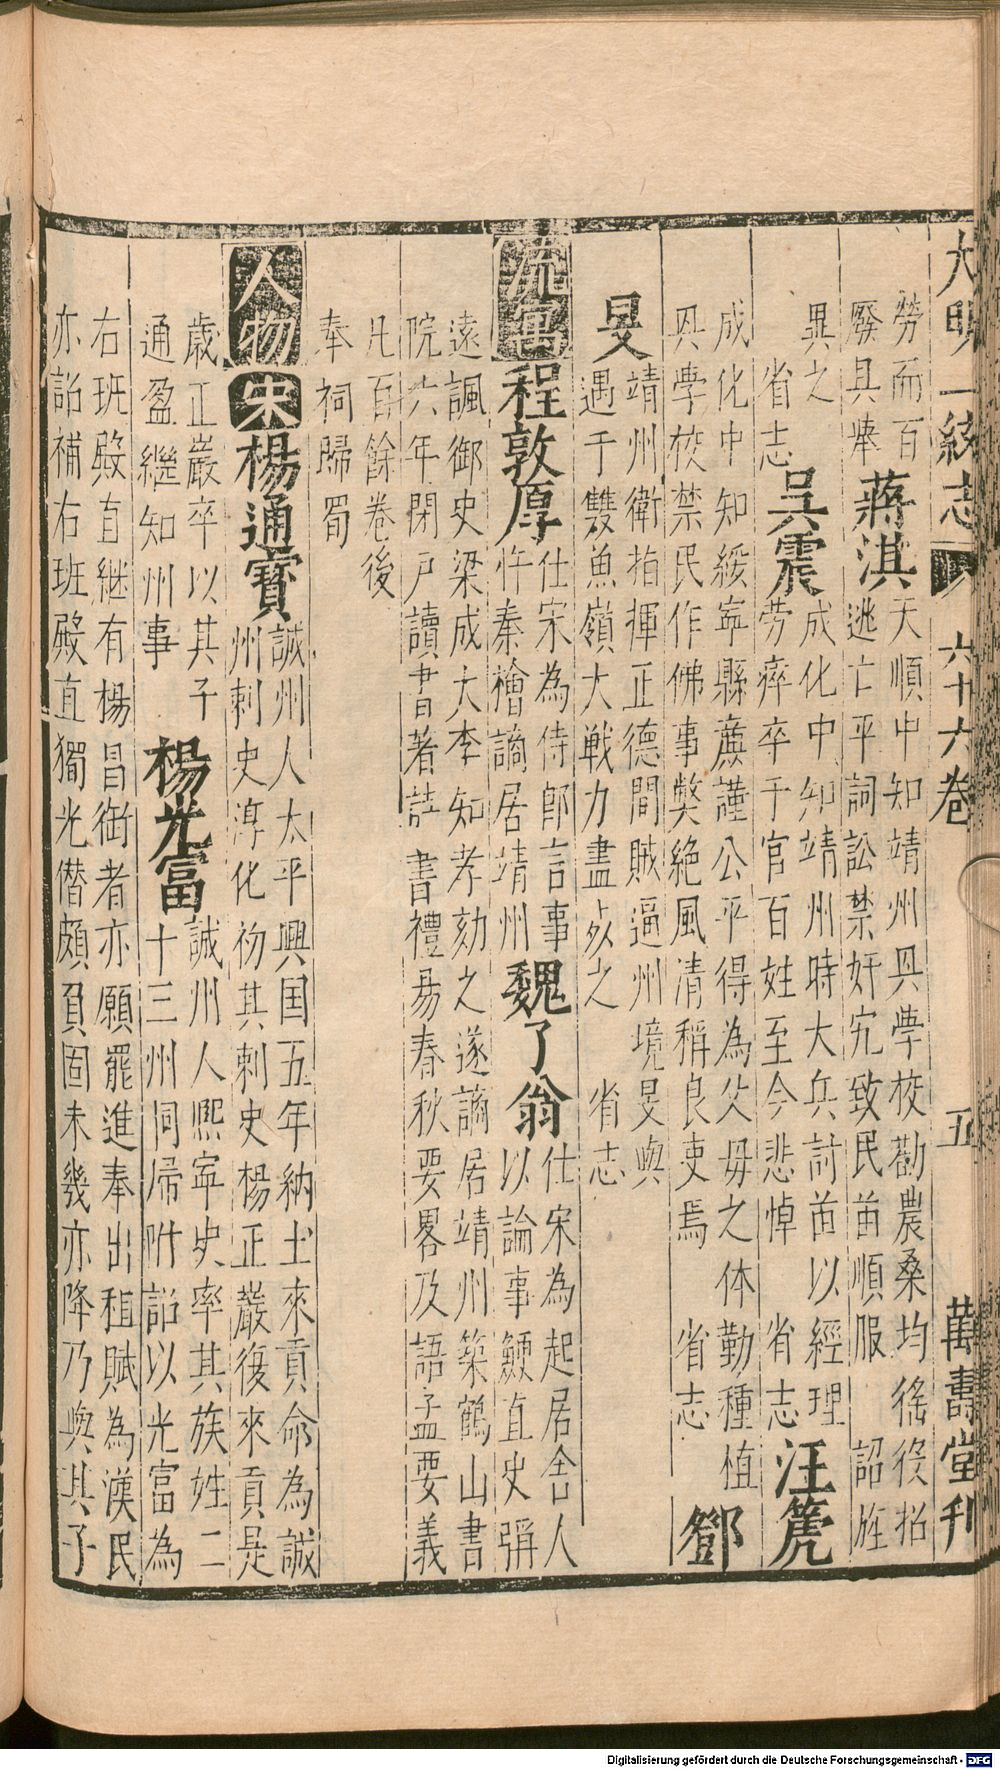 大明一統志 六十六卷 五 萬壽堂刊
勞而百
廢具舉
蔣淇
天順中知靖州興學校勸農桑均徭役招
逃亡平詞訟禁奸宄致民苗順服 詔旌
異之
省志
吳震
成化中知靖州時大兵討苗以經理
勞瘁卒于官百姓至今悲悼 省志
汪篪
成化中知綏寧縣亷謹公平得為父母之体勤種植
興學校禁民作佛事獘絕風清稱良吏焉 省志
鄧
旻
靖州衛指揮正德間賊逼州境旻與
遇于雙魚嶺大戦力盡死之 省志
流寓
程敦厚
仕宋為侍郎言事
忤秦檜謫居靖州
魏了翁
仕宋為起居舍人
以論事鯁直史彌
遠諷御史梁成大李知孝劾之遂謫居靖州築鶴山書
院六年閉戸讀書著諸書禮昜春秋要畧及語孟要義
凡百餘卷後
奉祠歸蜀
人物
宋
楊通寳
誠州人太平興国五年納土來貢命為誠
州刺史淳化初其刺史楊正巖復來貢是
歲正巖卒以其子
通盈繼知州事
楊光富
誠州人熈寧史率其族姓二
十三州同歸附詔以光富為
右班殿直継有楊昌衘者亦願罷進奉出租賦為漢民
亦詔補右班殿直獨光僭頗負固未幾亦降乃與其子
Digitalisierung gefördert durch die Deutsche Forschungsgemeinschaft - DFG